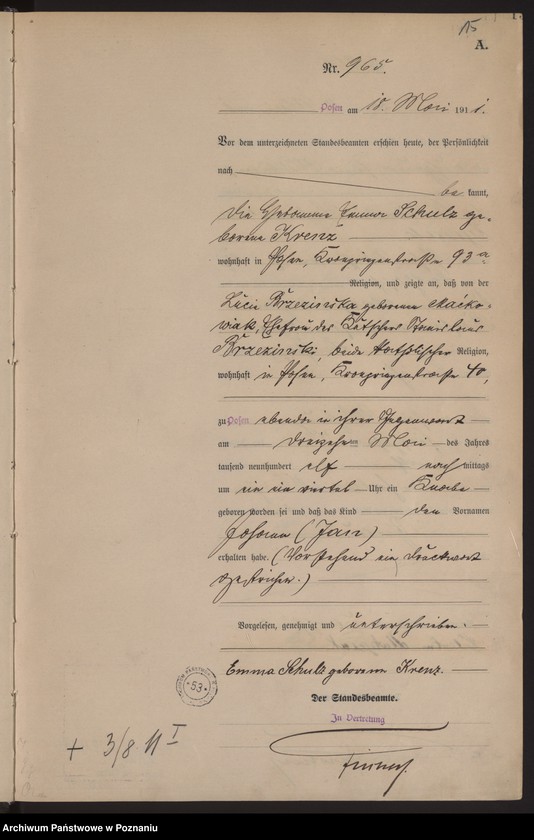 15
A.
Nr. 965.
Posen am 15. Mai 1911.
Vor dem unterzeichneten Standesbeamten erschien heute, der Persönlichkeit
nach
be kannt,
die Hebamme Emma Schulz ge-
borene Krenz
wohnhaft in Posen, Kronprinzenstraße 93a
Religion, und zeigte an, daß von der
Lucia Brzezinska geborenen Maćko-
wiak, Ehefrau des Kutschers Stanislaus
Brzezinski, beide katholischer Religion,
wohnhaft in Posen, Kronprinzenstraße 40,
zu Posen ebenda in ihrer Gegenwart
am dreizehnten Mai des Jahres
tausend neunhundert elf nachmittags
um ein ein viertel Uhr ein Knabe
geboren worden sei und daß das Kind den Vornamen
Johann (Jan)
erhalten habe. (Vorstehend ein Druckwort
gestrichen.)
Vorgelesen, genehmigt und unterschrieben.
Emma Schulz geborene Krenz.
Der Standesbeamte.
In Vertretung
53
+ 3/8 11 I
Archiwum Państwowe w Poznaniu